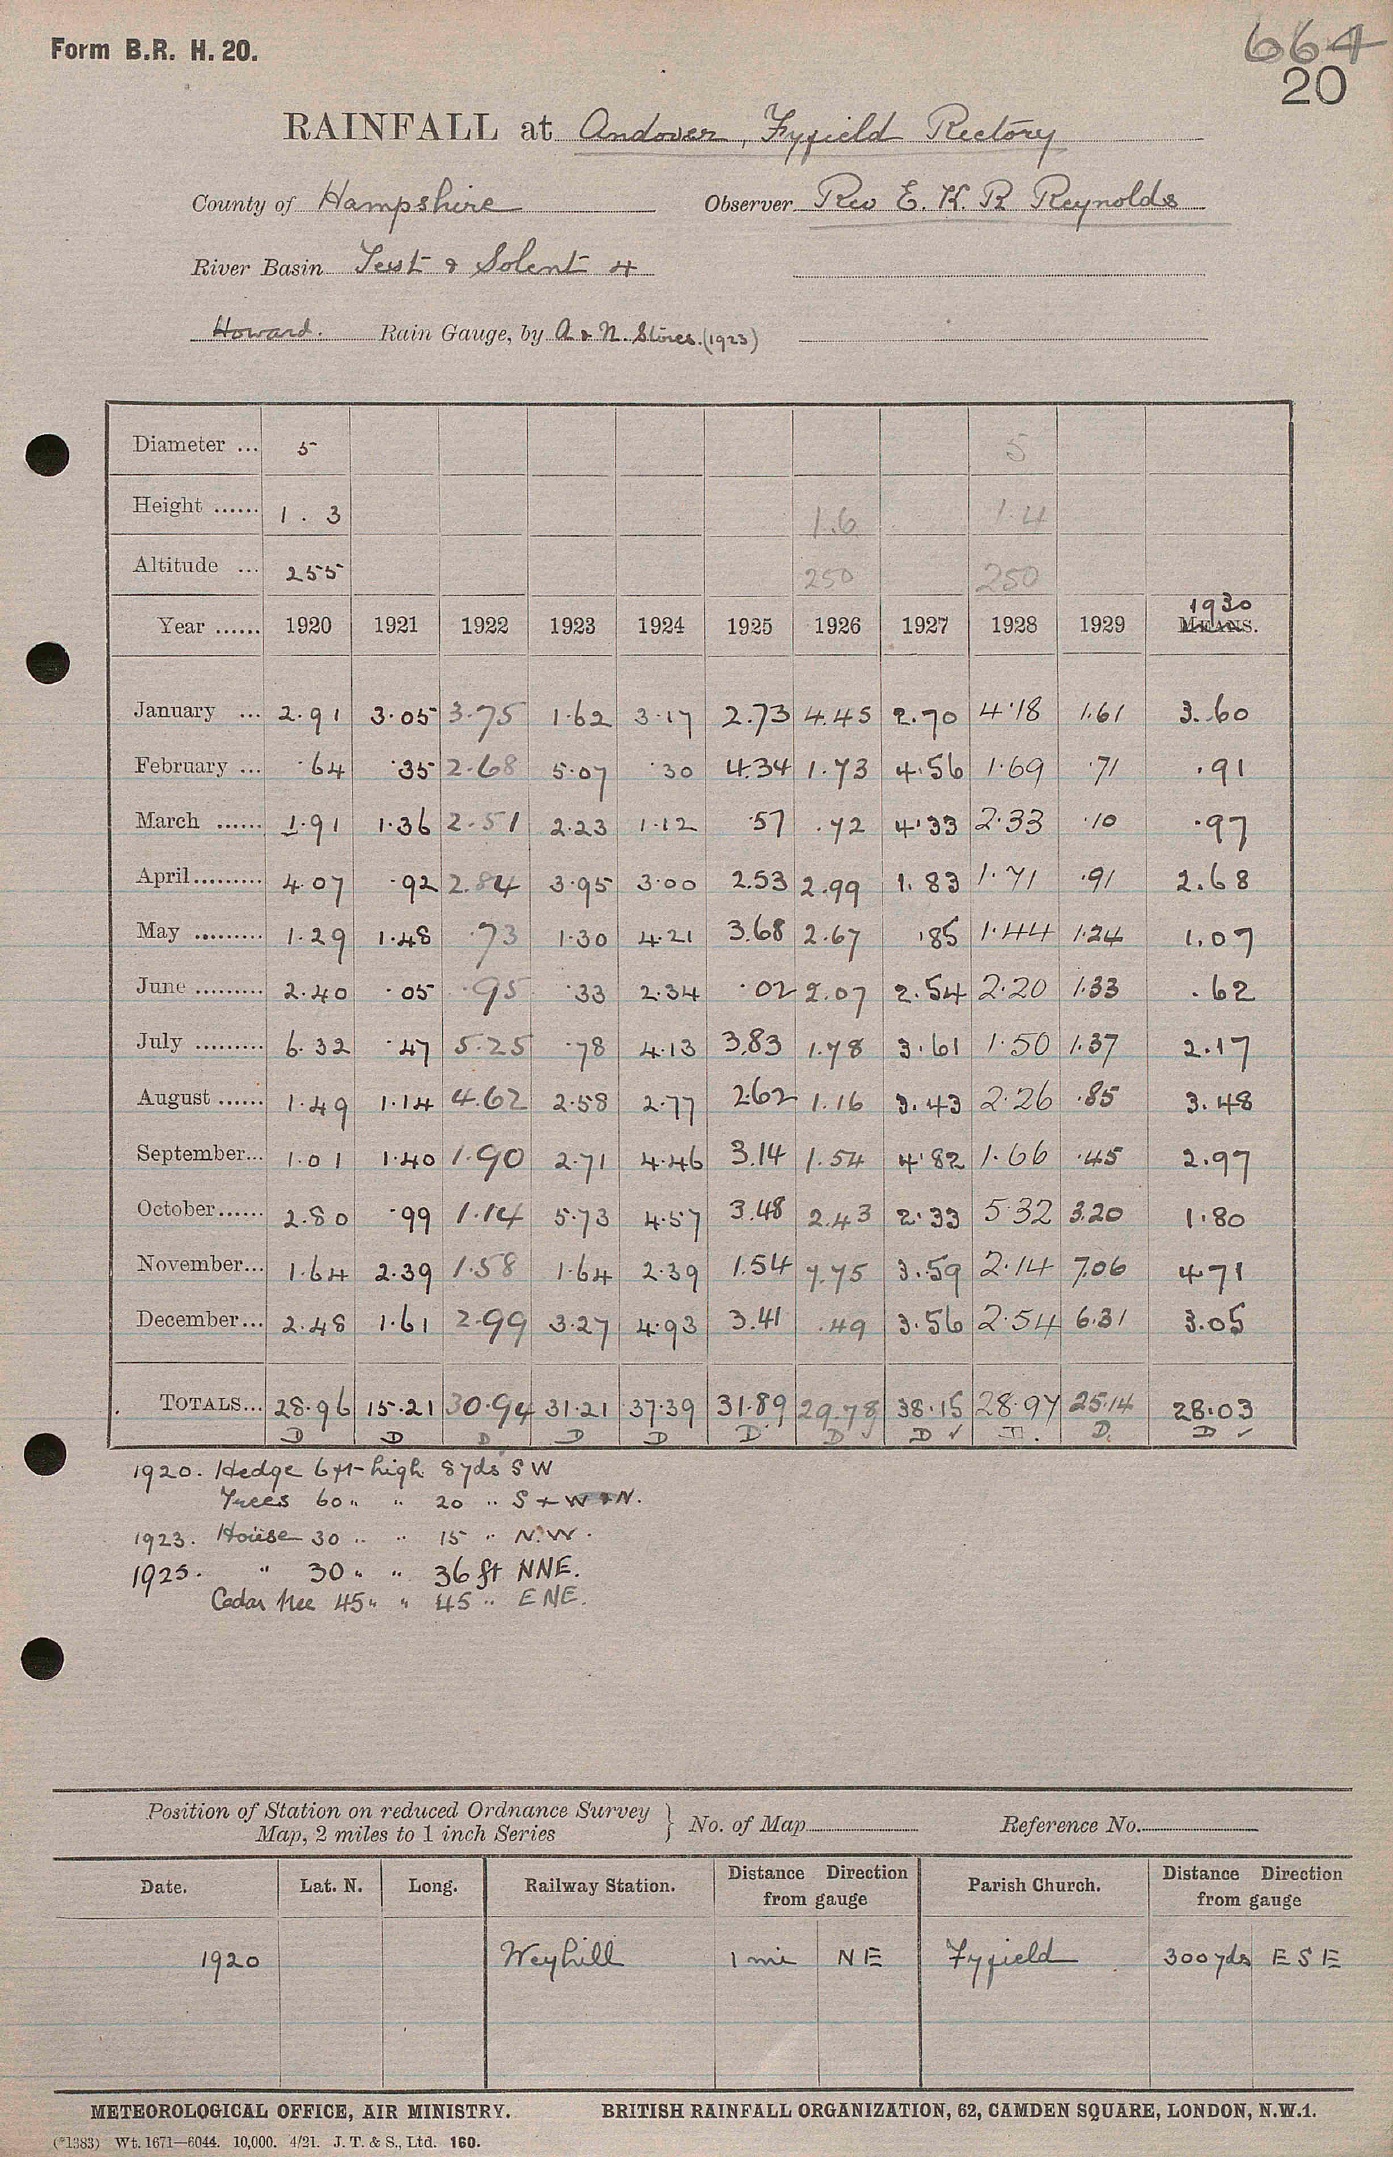 Form B.R. H. 20.
664
20
RAINFALL at Andover, Fyfield Rectory
County of Hampshire Observer Rev E. K. R Reynolds
River Basin Test & Solent 4
Howard. Rain Gauge, by A & N. Stores. (1923)
Diameter ... 5 5
Height ...... 1 . 3 1.6 1.4
Altitude ... 255 250 250
Year ...... 1920 1921 1922 1923 1924 1925 1926 1927 1928 1929 1930 MEANS.
January ... 2.91 3.05 3.75 1.62 3.17 2.73 4.45 2.70 4.18 1.61 3.60
February ... .64 .35 2.68 5.07 .30 4.34 1.73 4.56 1.69 .71 .91
March ...... 1.91 1.36 2.51 2.23 1.12 .57 .72 4.33 2.33 .10 .97
April......... 4.07 .92 2.84 3.95 3.00 2.53 2.99 1.83 1.71 .91 2.68
May ......... 1.29 1.48 .73 1.30 4.21 3.68 2.67 .85 1.44 1.24 1.07
June ......... 2.40 .05 .95 .33 2.34 .02 2.07 2.54 2.20 1.33 .62
July ......... 6.32 .47 5.25 .78 4.13 3.83 1.78 3.61 1.50 1.37 2.17
August ...... 1.49 1.14 4.62 2.58 2.77 2.62 1.16 3.43 2.26 .85 3.48
September... 1.01 1.40 1.90 2.71 4.46 3.14 1.54 4.82 1.66 .45 2.97
October...... 2.80 .99 1.14 5.73 4.57 3.48 2.43 2.33 5.32 3.20 1.80
November... 1.64 2.39 1.58 1.64 2.39 1.54 7.75 3.59 2.14 7.06 4.71
December... 2.48 1.61 2.99 3.27 4.93 3.41 .49 3.56 2.54 6.31 3.05
TOTALS... 28.96 15.21 30.94 31.21 37.39 31.89 29.78 38.15 28.97 25.14 28.03
D D D D D D D D ✓ D. D. D ✓
1920. Hedge 6 ft high 8 yds S W
Trees 60 " " 20 " S + W + N.
1923. House 30 " " 15 " N.W.
1925. " 30 " " 36 ft NNE.
Cedar tree 45 " " 45 " ENE.
Position of Station on reduced Ordnance Survey
Map, 2 miles to 1 inch Series } No. of Map Reference No.
Date. Lat. N. Long. Railway Station. Distance Direction from gauge Parish Church. Distance Direction from gauge
1920 Weyhill 1 mi NE Fyfield 300 yds E S E
METEOROLOGICAL OFFICE, AIR MINISTRY. BRITISH RAINFALL ORGANIZATION, 62, CAMDEN SQUARE, LONDON, N.W.1.
(*1383) Wt. 1671—6044. 10,000. 4/21. J. T. & S., Ltd. 160.